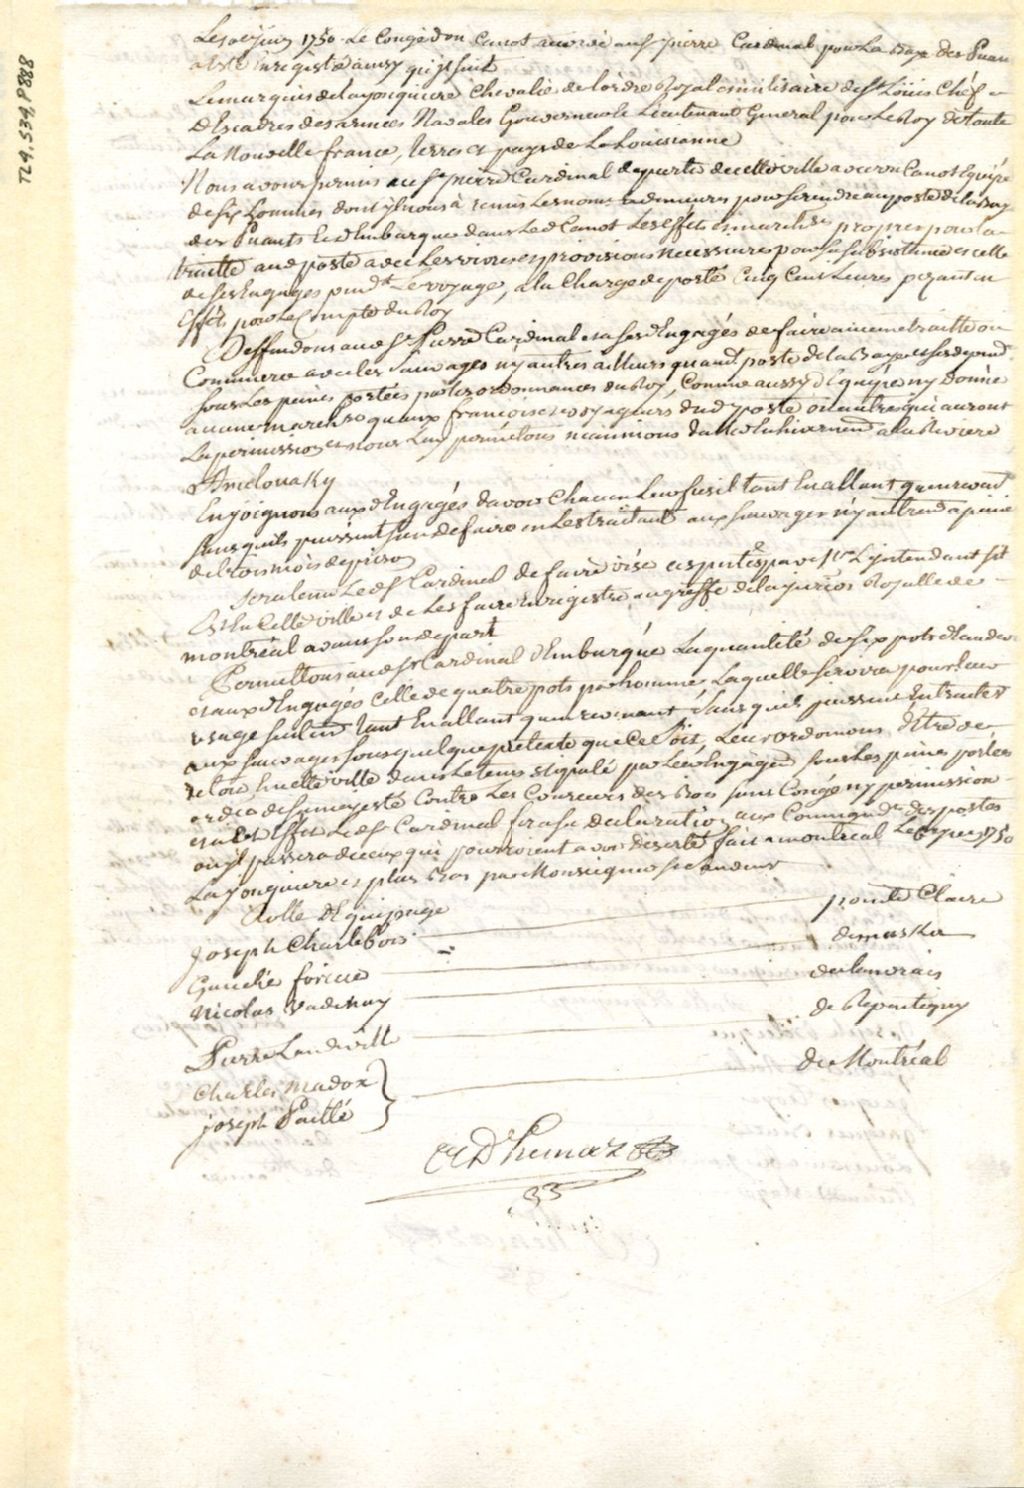 1750. Le Congé d'un Canot accordé au Sr pierre Cardinal pour La Baye des Puan
a Esté Enregistré ainsy quil suit
Le marquis de la jonquiere Chevalier de l'ordre Royal et militaire de St Louis Chef
D'Escadres des armées Navales Gouverneur et Lieutenant General pour Le Roy de toute
La Nouvelle france, terres et pays de La Louisianne
Nous avons permis au Sr pierre Cardinal de partir de cette ville avec un Canot Equipé
de six hommes dont il nous à remis Les noms et demeures pour se rendre au poste de la Bay
des Puants Et d'Embarquer dans Led Canot Les Effets et marchses propres pour la
traitte aud poste avec Les vivres et provisions necessaires pour sa subsistance et celle
de ses Engagés pendt Le voyage, a la Charge de porté Cinq Cent Livres pezant en
Effets pour Le Compte du Roy
Deffendons aud Sr Pierre Cardinal et a ses d Engagés de faire aucune traitte ou
Commerce avec les Sauvages ny autres ailleurs quaud. poste de la Baye et ses depend.
sous Les peines portées par les ordonnances du Roy, Comme aussy d'Equiper ny Donner
aucune marchse qu'aux francois et voyageurs dud poste ou autres qui auront
La permission et nous Luy permettons neanmoins a la Riviere
Enjoignons auxd Engagés d'avoir Chacun Leur fusil tant En allant qu'en revend
sans quils puissent s'en defaire en Les traitant aux Sauvages n'y autrement a peine
de trois mois de prison
Sera tenu Led Sr Cardinal de faire visé ces pntes par Mr L'jntendant sil
Est En Cette ville et de Les faire Enregistré au greffe de la jurion Royalle de
montréal avant son depart
Permettons aud Sr Cardinal d'Embarqué La quantité de six pots d'Eaudevie
et auxd Engagés Celle de quatre pots par homme Laquelle servira pour Leur
usage seulemt tant En allant qu'en revenant, Sans quils puissent En traiter
aux Sauvages sous quelque pretexte que Ce soit, Leur ordonnons d'Etre de
retour En cette ville dans Le tems stipulé par Leur Engagemt sous Les peines portées
de sa majesté Contre Les Coureurs des Bois sans Congé ny permission
Et a Cet Effet Led Sr Cardinal fera sa declaration aux Commandts des postes
ou jl passera de ceux qui pourroient avoir deserté fait a montreal Le 1750
La jonquiere et plus Bas par Monseigneur
Rolle D'Equipage
Joseph Charlebois pointe Claire
de maska
Nicolas
de Repentigny
Pierre
Charles madox } de Montréal
joseph Paillé
D'hemard